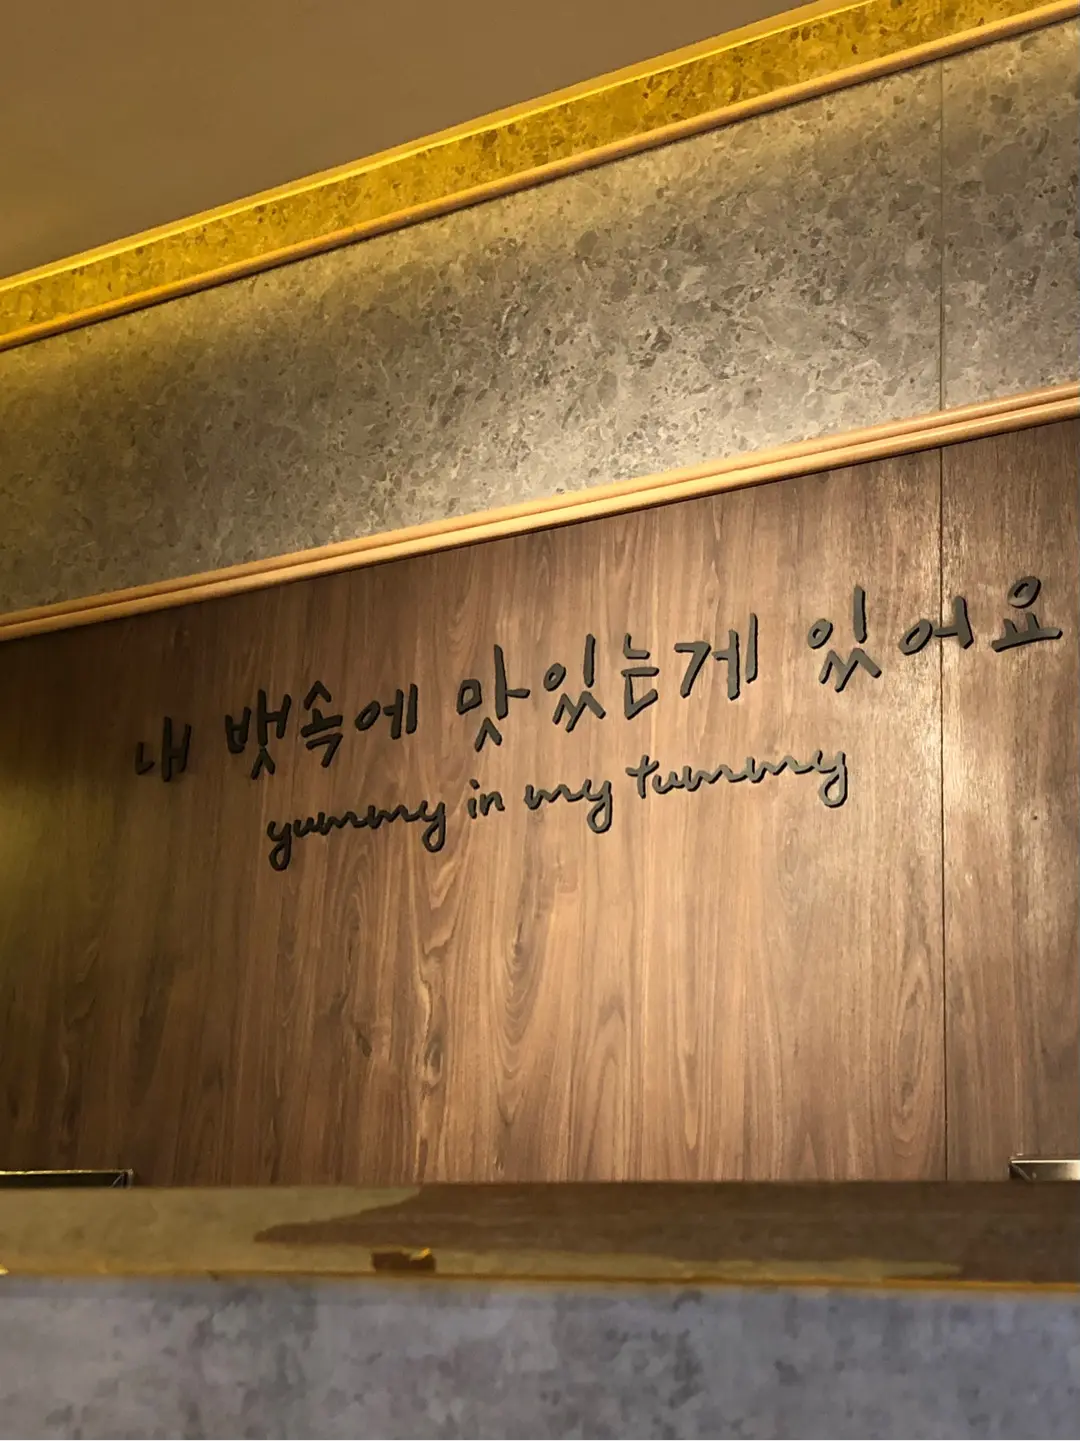 내 뱃속에 맛있는게 있어요
yummy in my tummy